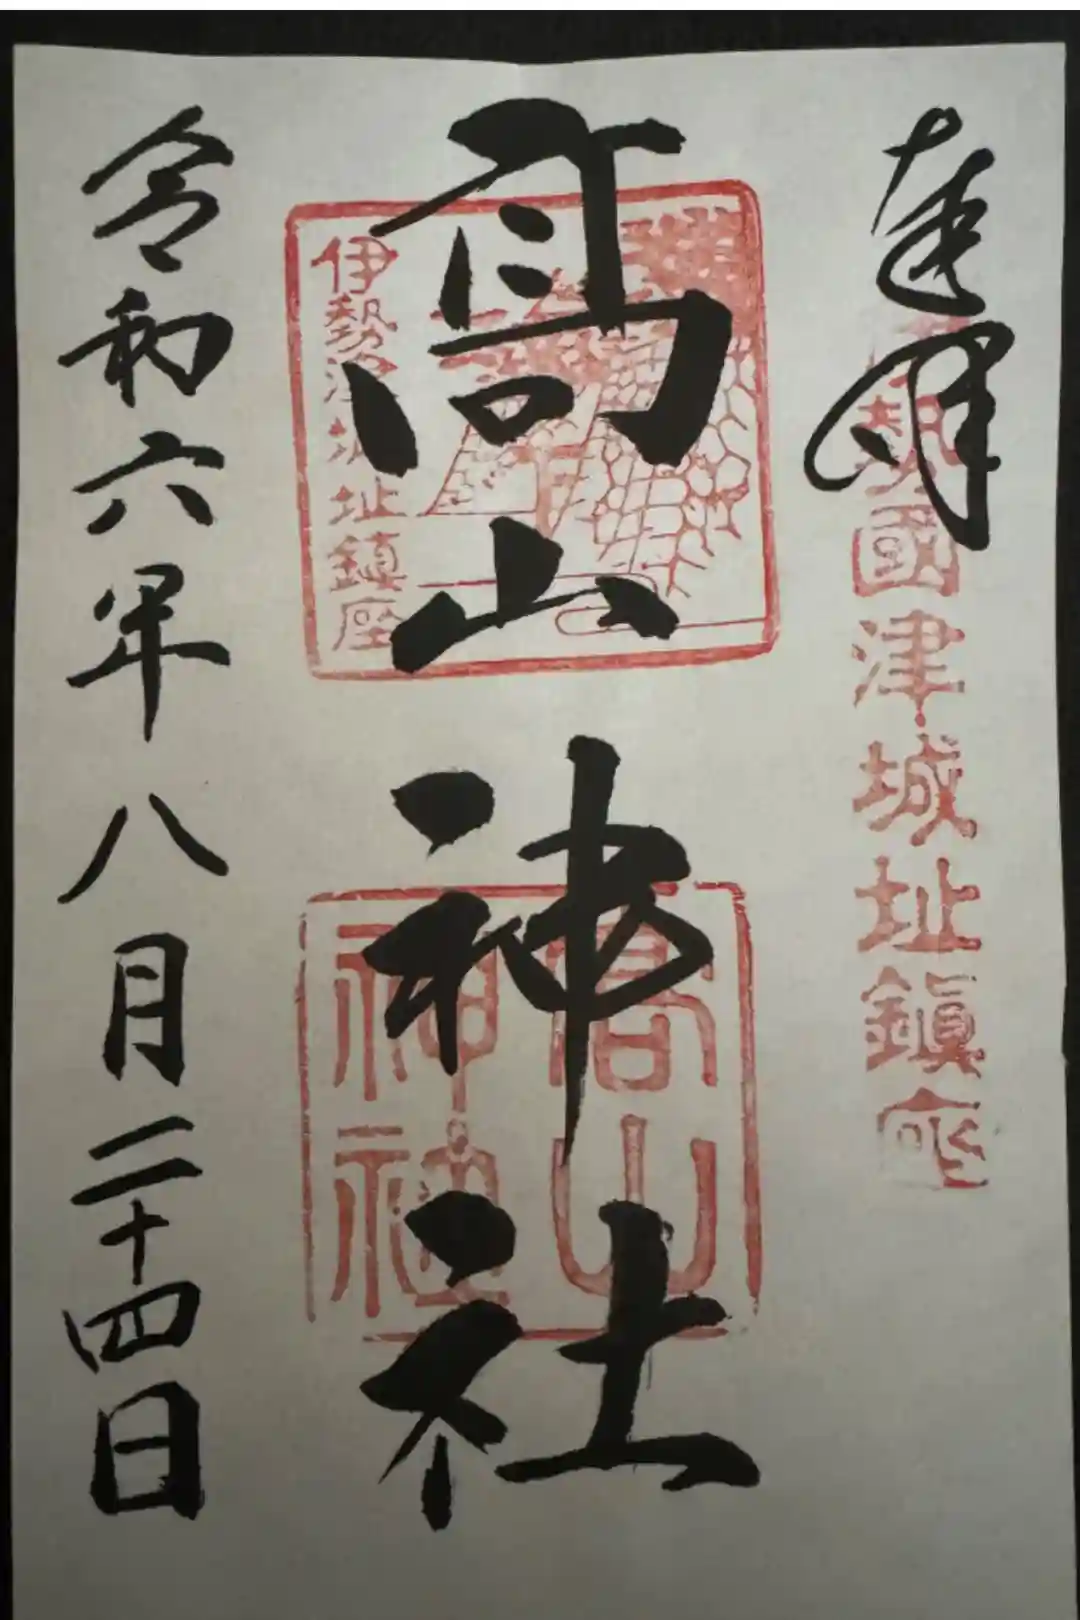 奉拝
伊勢國津城址鎮座
高山神社
伊勢津城址鎮座
高山
神社
令和六年八月二十四日